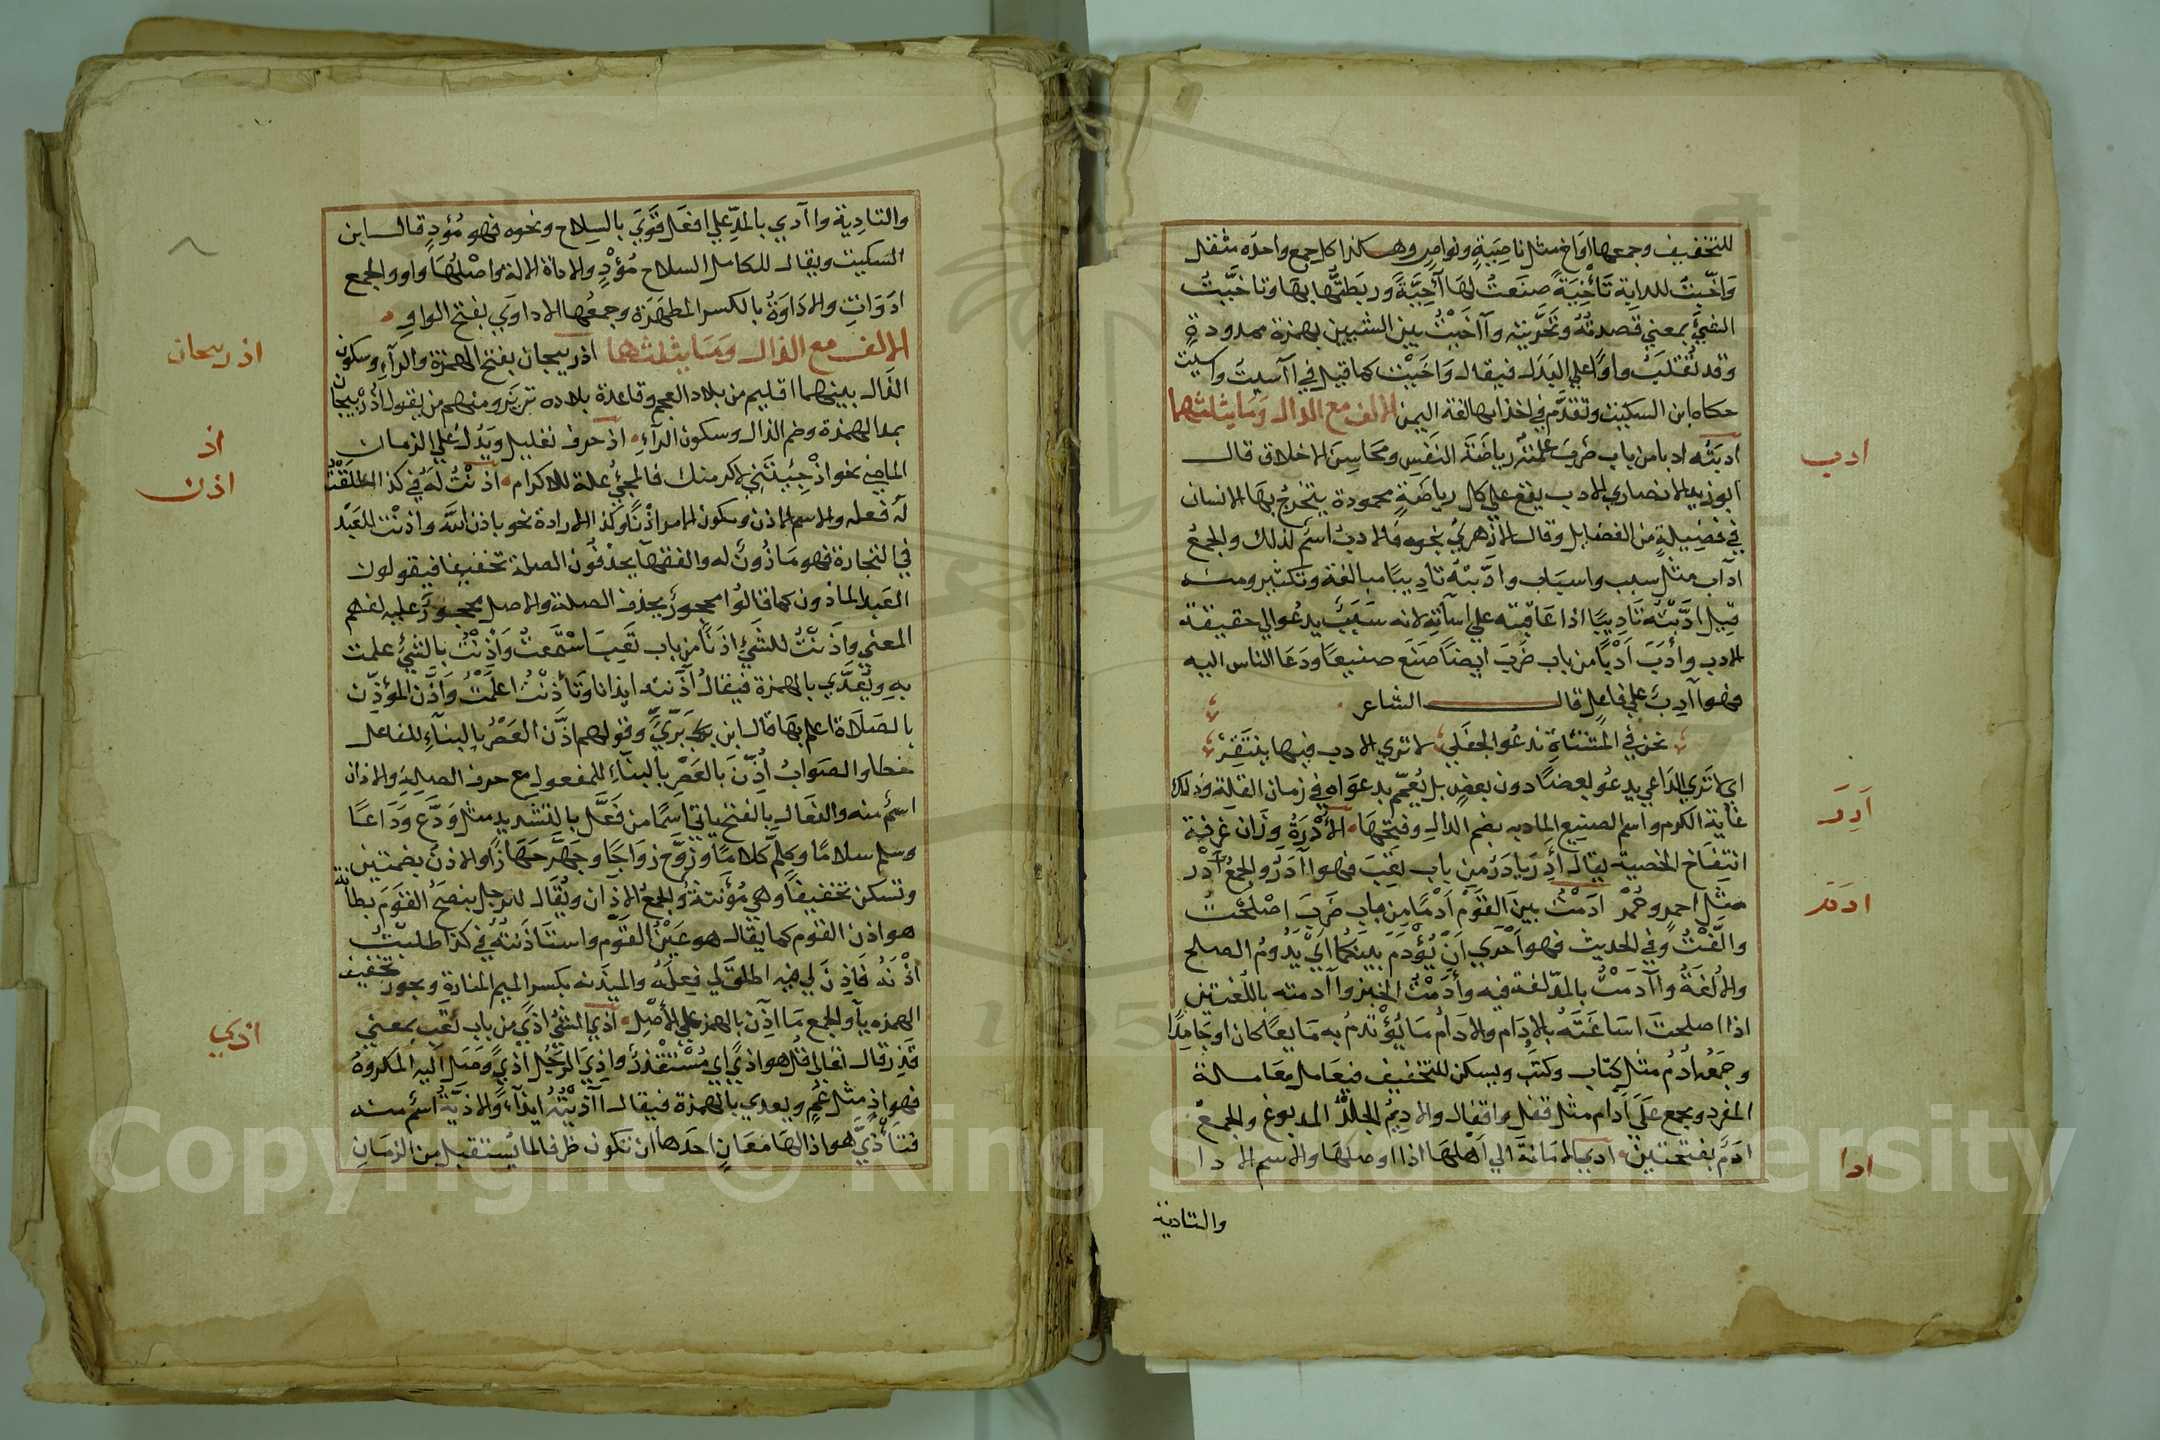 للتخفيف وجمعها اواخ مثل ناصية ونواص وهكذا كل جمع واحده مثقل
وَاخّيت للدابة تَأْخِيَةً صنعت لها آخِيَّةً وربطتها بها وتاخّيتُ
الشيَّ بمعني قصدتُهُ وتحرّيته وآاخَيْتُ بين الشيين بهمزة ممدودة
وقد تُقلَبُ واوًا علي البدل فيقال وَاخَيْت كما قيل في اآسيت واسيت
حكاه ابن السكيت وتقدَّم في اخذ انها لغة اليمن الالف مع الدال وما يثلثهما
ادب
ادبتُه ادبا من باب ضرب علمته رياضَة النفس ومحاسِنَ الاخلاق قال
ابو زيد الانصاري الادب يقع علي كل رياضةٍ محمودة يتخرجُ بها الانسان
في فضيلةٍ من الفضايل وقال الازهريُّ نحوه فالادبُ اسم لذلك والجمعُ
اداب مثل سبب واسباب وادّبْتُه تاديبًا مبالغة وتكثير ومنه
قيل ادّبْتُه تَادِيبًا اذا عاقبته علي اسآته لانه سَبَبٌ يدعو الي حقيقة
الادب وأدَبَ اَدْبًا من باب ضرَبَ ايضًا صَنَع صنيعًا ودَعَا الناس اليه
فهو اآدِبٌ علي فاعِل قال الشاعر
نحن في المشتاةِ ندعُو الجفَلي لا تري الادب فيها ينتَقِرْ
اي لا تَري الداعي يدعُو بعضًا دون بعضٍ بل يُعمّم بدعواه في زمان القلة وذلك
ادر
غاية الكرم واسم الصنيع المادبه بضم الدال وفتحها الأدْرَةُ وِزان غرفة
انتِفَاخ الخصية يقال أدِرَ يادَرُ من باب تعِبَ فهو اآدَرُ والجمعُ اُدْر
ادم
مثل احمر وحُمْر ادَمْتُ بين القَوْمِ اَدْمًا من باب ضَرَبَ اصْلحْتُ
والَّفْتُ وفي الحديث فهو اَحْرَي اَنْ يُؤْدَمَ بينكُما ايْ يَدُومُ الصلح
والالفَةُ وآادَمْتُ بالمدّ لغة فيه وأدَمْتُ الخبز وآادمته باللُغتين
اذا اصلحتَ اساغتَهُ بالادَام والادَامُ مَا يُؤْتدمُ به مَايعًا كان او جَامِدًا
وجَمْعُه اُدُمٌ مثل كِتَاب وكتُب ويسكن للتخفيف فيعامل معَاملة
المفرد ويجمع علي اَدام مثل قفل واقفال والاديم الجلدُ المدبوغ والجمعُ
ادا
اَدَمٌ بفتحتين ادي الامَانَةَ الي اَهْلها اذا اوصلها والاسم الادا
والتادية
والتادِية واآدي بالمدِّ علي افعَل قَوَّي بالسِلاح ونحوه فهو مُؤدٍ قال ابن
السكيت ويقال للكامل السلاح مُؤْدٍ والاداة الالة واصْلُهَا واو والجمع
ادَوَات والادَاوَةُ بالكسر المطهَرَة وجمعُها الاداوَي بفتح الواو
اذربيحان
الالف مع الذال ومَا يثلثهما اذربيجان بفتح الهمزة والرآء وسكون
الذال بينهما اقليم من بلاد العجم وقاعدة بلاده تبريز ومنهم من يقول اذُرْبيجان
اذ
بمد الهمزة وضم الذال وسكون الرآء اذ حرف تعليل ويدُلُ علي الزمان
اذن
الماضي نحو اذْ جِيْتَني لاكرمنك فالمجيُ علة للاكرام اذِنْتُ لَهُ في كذا اطْلَقْتُ
لَهُ فعله والاسم الاذن ويكون الامر اذْنًا وكذا الارادة نحو باذن اللَّه واذِنْت للعَبْد
في التجارة فهو مَاذُونٌ له والفقهآ يحذفُون الصلة تخفيفا فيقولون
العبد الماذون كما قالُوا محجورٌ بحذف الصلة والاصل محجورٌ عليه لفهم
المعني واَذِنتُ للشيْ اذَنًا من باب تَعِبَ اسْتَمعتُ وَاَذِنْتُ بالشيْ علمت
بهِ ويُعدَّي بالهمزة فيقال اآذنته ايذانا وتَأذنْتُ اعلَمْتُ وَاَذَّن المؤذِّن
بالصلَاة اعلم بها قال ابن بَرِّيّ وقولهم اذَّن العَصْرُ بالبناءِ للفاعل
خطا والصَوابُ اُذِّنَ بالعَصْرِ بالبناءِ للمفعول مع حرف الصلةِ والاذان
اسمٌ منه والفعَال بالفتح ياتي اسمًا من فَعَّل بالتشديد مثل وَدَّعَ وَدَاعًا
وسلم سلامًا وكلَّمَ كلامًا وزوَّج زوَاجًا وجهَّز جهَازًا والاذن بضمتين
وتسكن تخفيفًا وهي مُؤنثة والجمعُ الاذان ويُقَال للرجل ينصحُ القَوم بطانة
هو اذن القوم كما يقال هو عَيْنُ القَوم واستاذَنتُهُ في كذا طلبْتُ
اذْنَهُ فَاذِنَ لي فيه اطلقَ لي فِعلَهُ والميْذنه بكسر الميم المنارة ويجوز تخفيف
اذي
الهمزه يآ والجمع مَااذِن بالهمز علي الاصل اَذِيَ الشيُ اذًي من باب تعب بمعني
قذر قال تعالي قُل هو اذًي اي مُسْتقذرٌ واذيَ الرجُل اذًي وصَل اليه المكروهُ
فهو اذٍ مثل عمٍ ويعدي بالهمزة فيقال اآذيْتُهُ ايذآءً والاذيَّةُ اسمٌ منه
فتاَذَّيَ هو اذا لها مَعَانٍ احدها ان تكون ظرفا لما يُستقبل من الزمان
Copyright © King Saud University